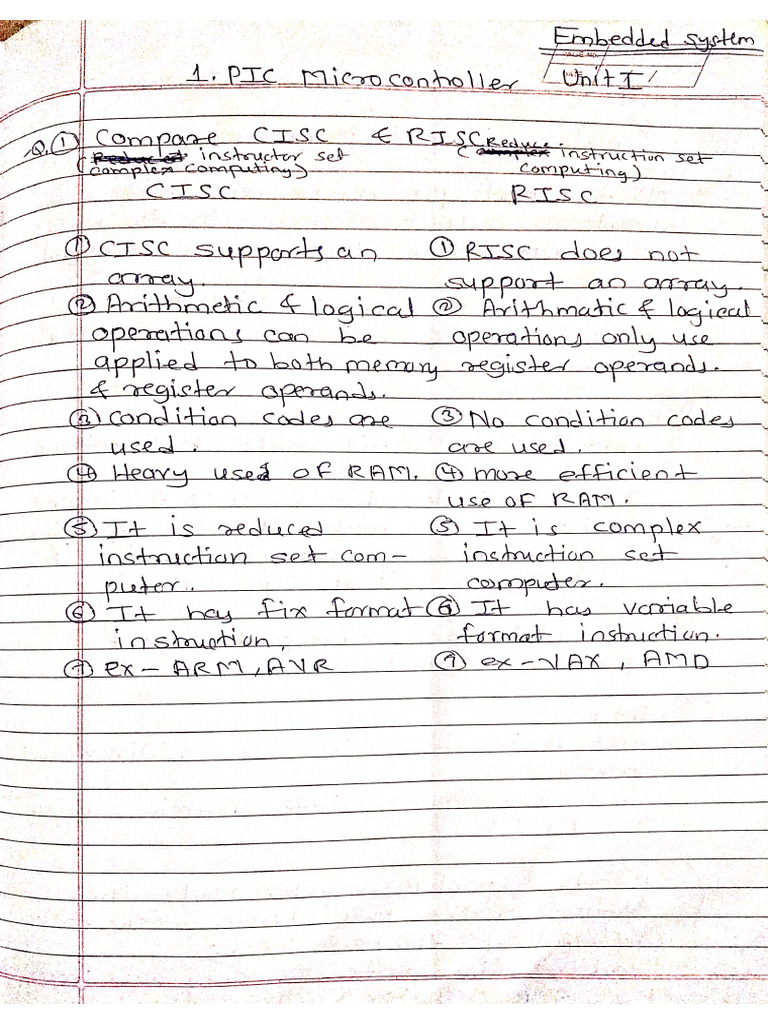 Embedded system
1. PIC Microcontroller Unit I
Q.① Compare CISC & RISC Reduce
(Reduced instructor set (complex instruction set
complex computing) computing)
CISC RISC
① CISC supports an ① RISC does not
array. support an array.
② Arithmetic & logical ② Arithmatic & logical
operations can be operations only use
applied to both memory register operands.
& register operands.
③ condition codes are ③ No condition codes
used. are used.
④ Heavy used of RAM. ④ more efficient
use of RAM.
⑤ It is reduced ⑤ It is complex
instruction set com- instruction set
puter. computer.
⑥ It hay fix format ⑥ It has variable
instruction, format instruction.
⑦ ex - ARM, AVR ⑦ ex - VAX, AMD